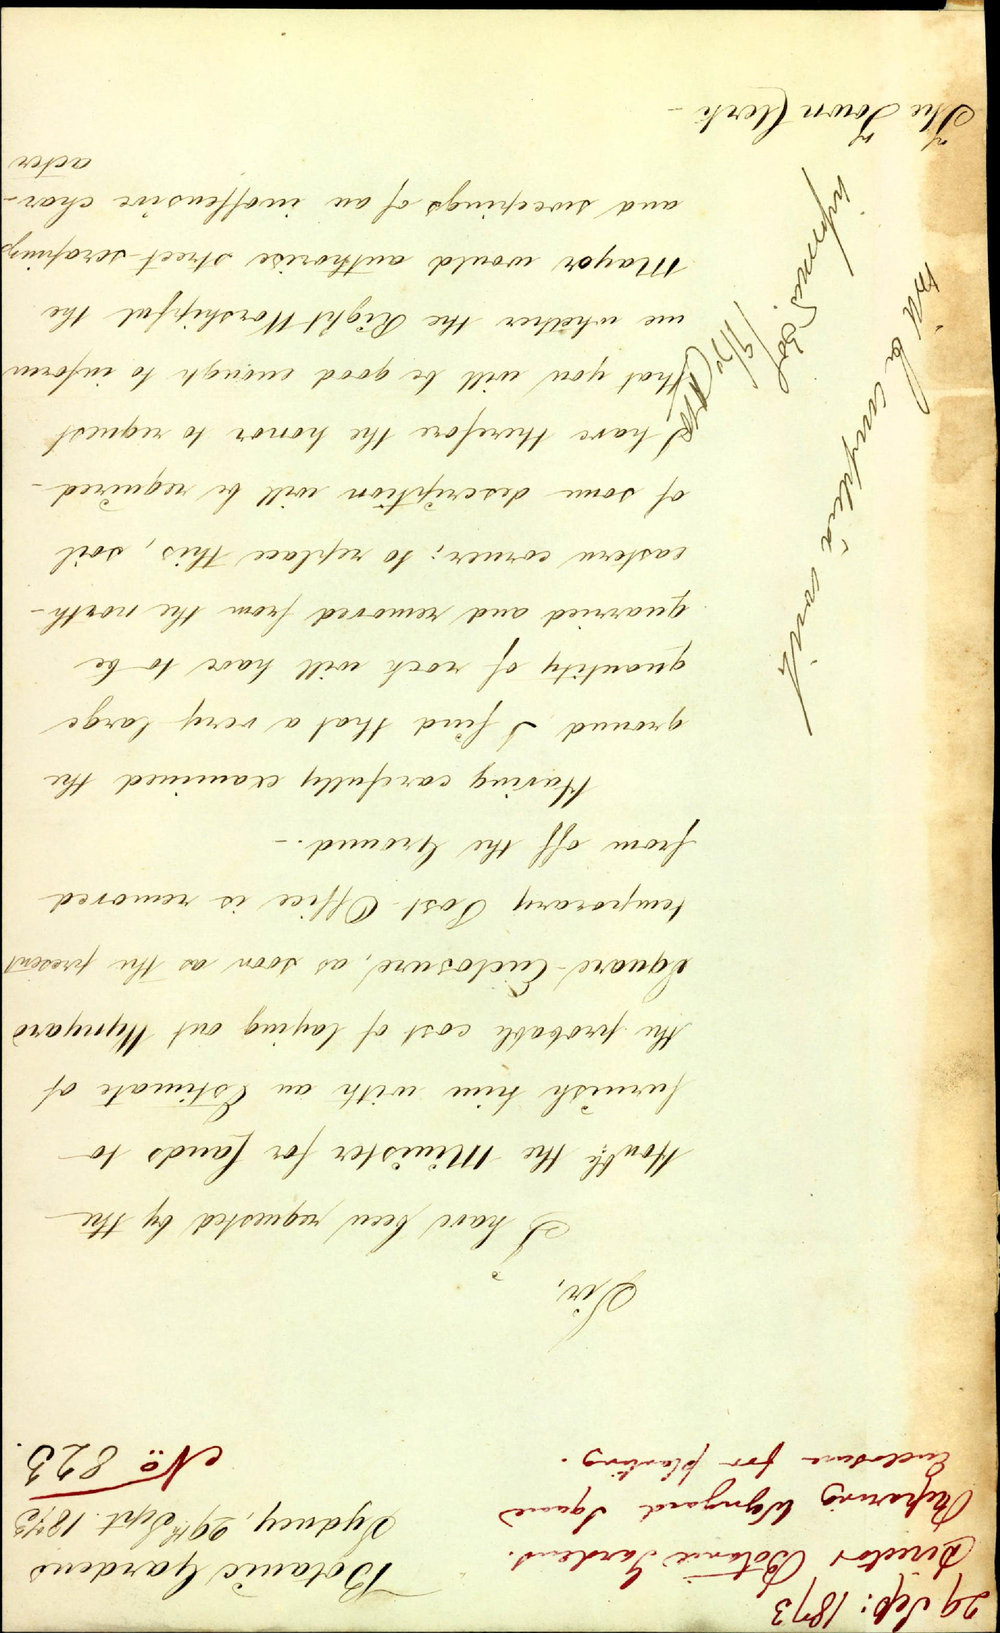 29 Sep: 1873
Director Botanic Gardens.
Preparing Wynyard Square
Enclosure for planting.
Botanic Gardens
Sydney, 29th Sept. 1873
No 823.
Sir,
I have been requested by the
Honble the Minister for Lands to
furnish him with an Estimate of
the probable cost of laying out Wynyard
Square Enclosure, as soon as the present
temporary Post Office is removed
from off the Ground.-
Having carefully examined the
ground I find that a very large
quantity of rock will have to be
quarried and removed from the north-
eastern corner; to replace this, soil
of some description will be required-
I have therefore the honor to request
that you will be good enough to inform
me whether the Right Worshipful the
Mayor would authorise street scrapings
and sweepings of an inoffensive char-
acter
The Town Clerk-
will be complied with
informed